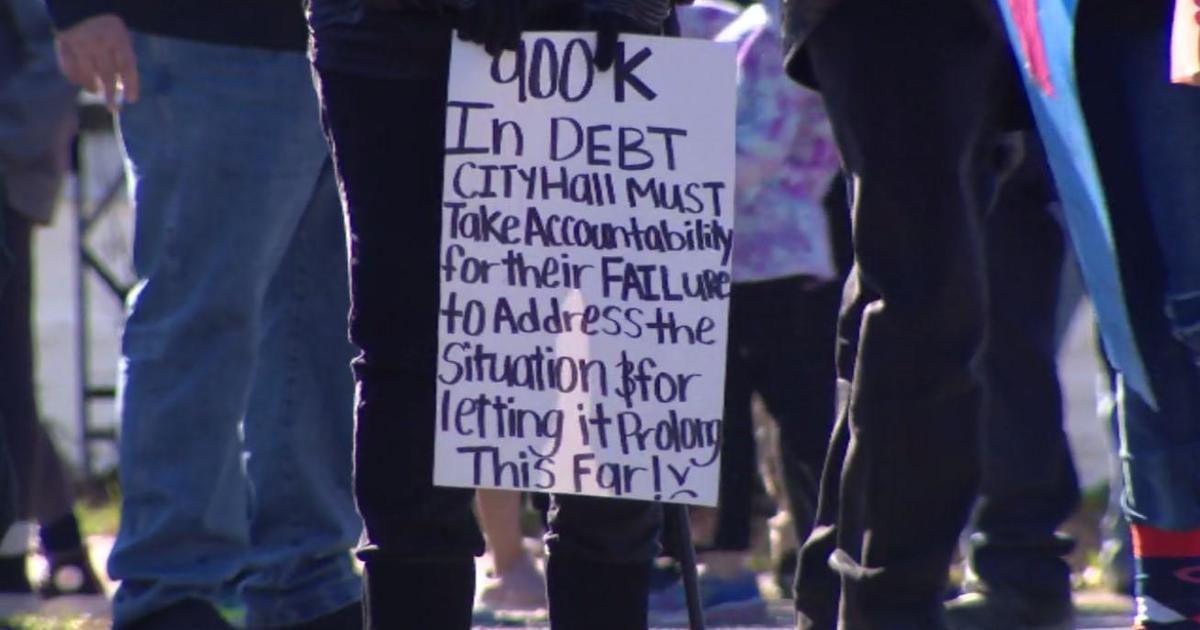 900K
In DEBT
CITY Hall MUST
Take Accountability
for their FAILURE
to Address the
Situation $ for
letting it Prolong
This Far!